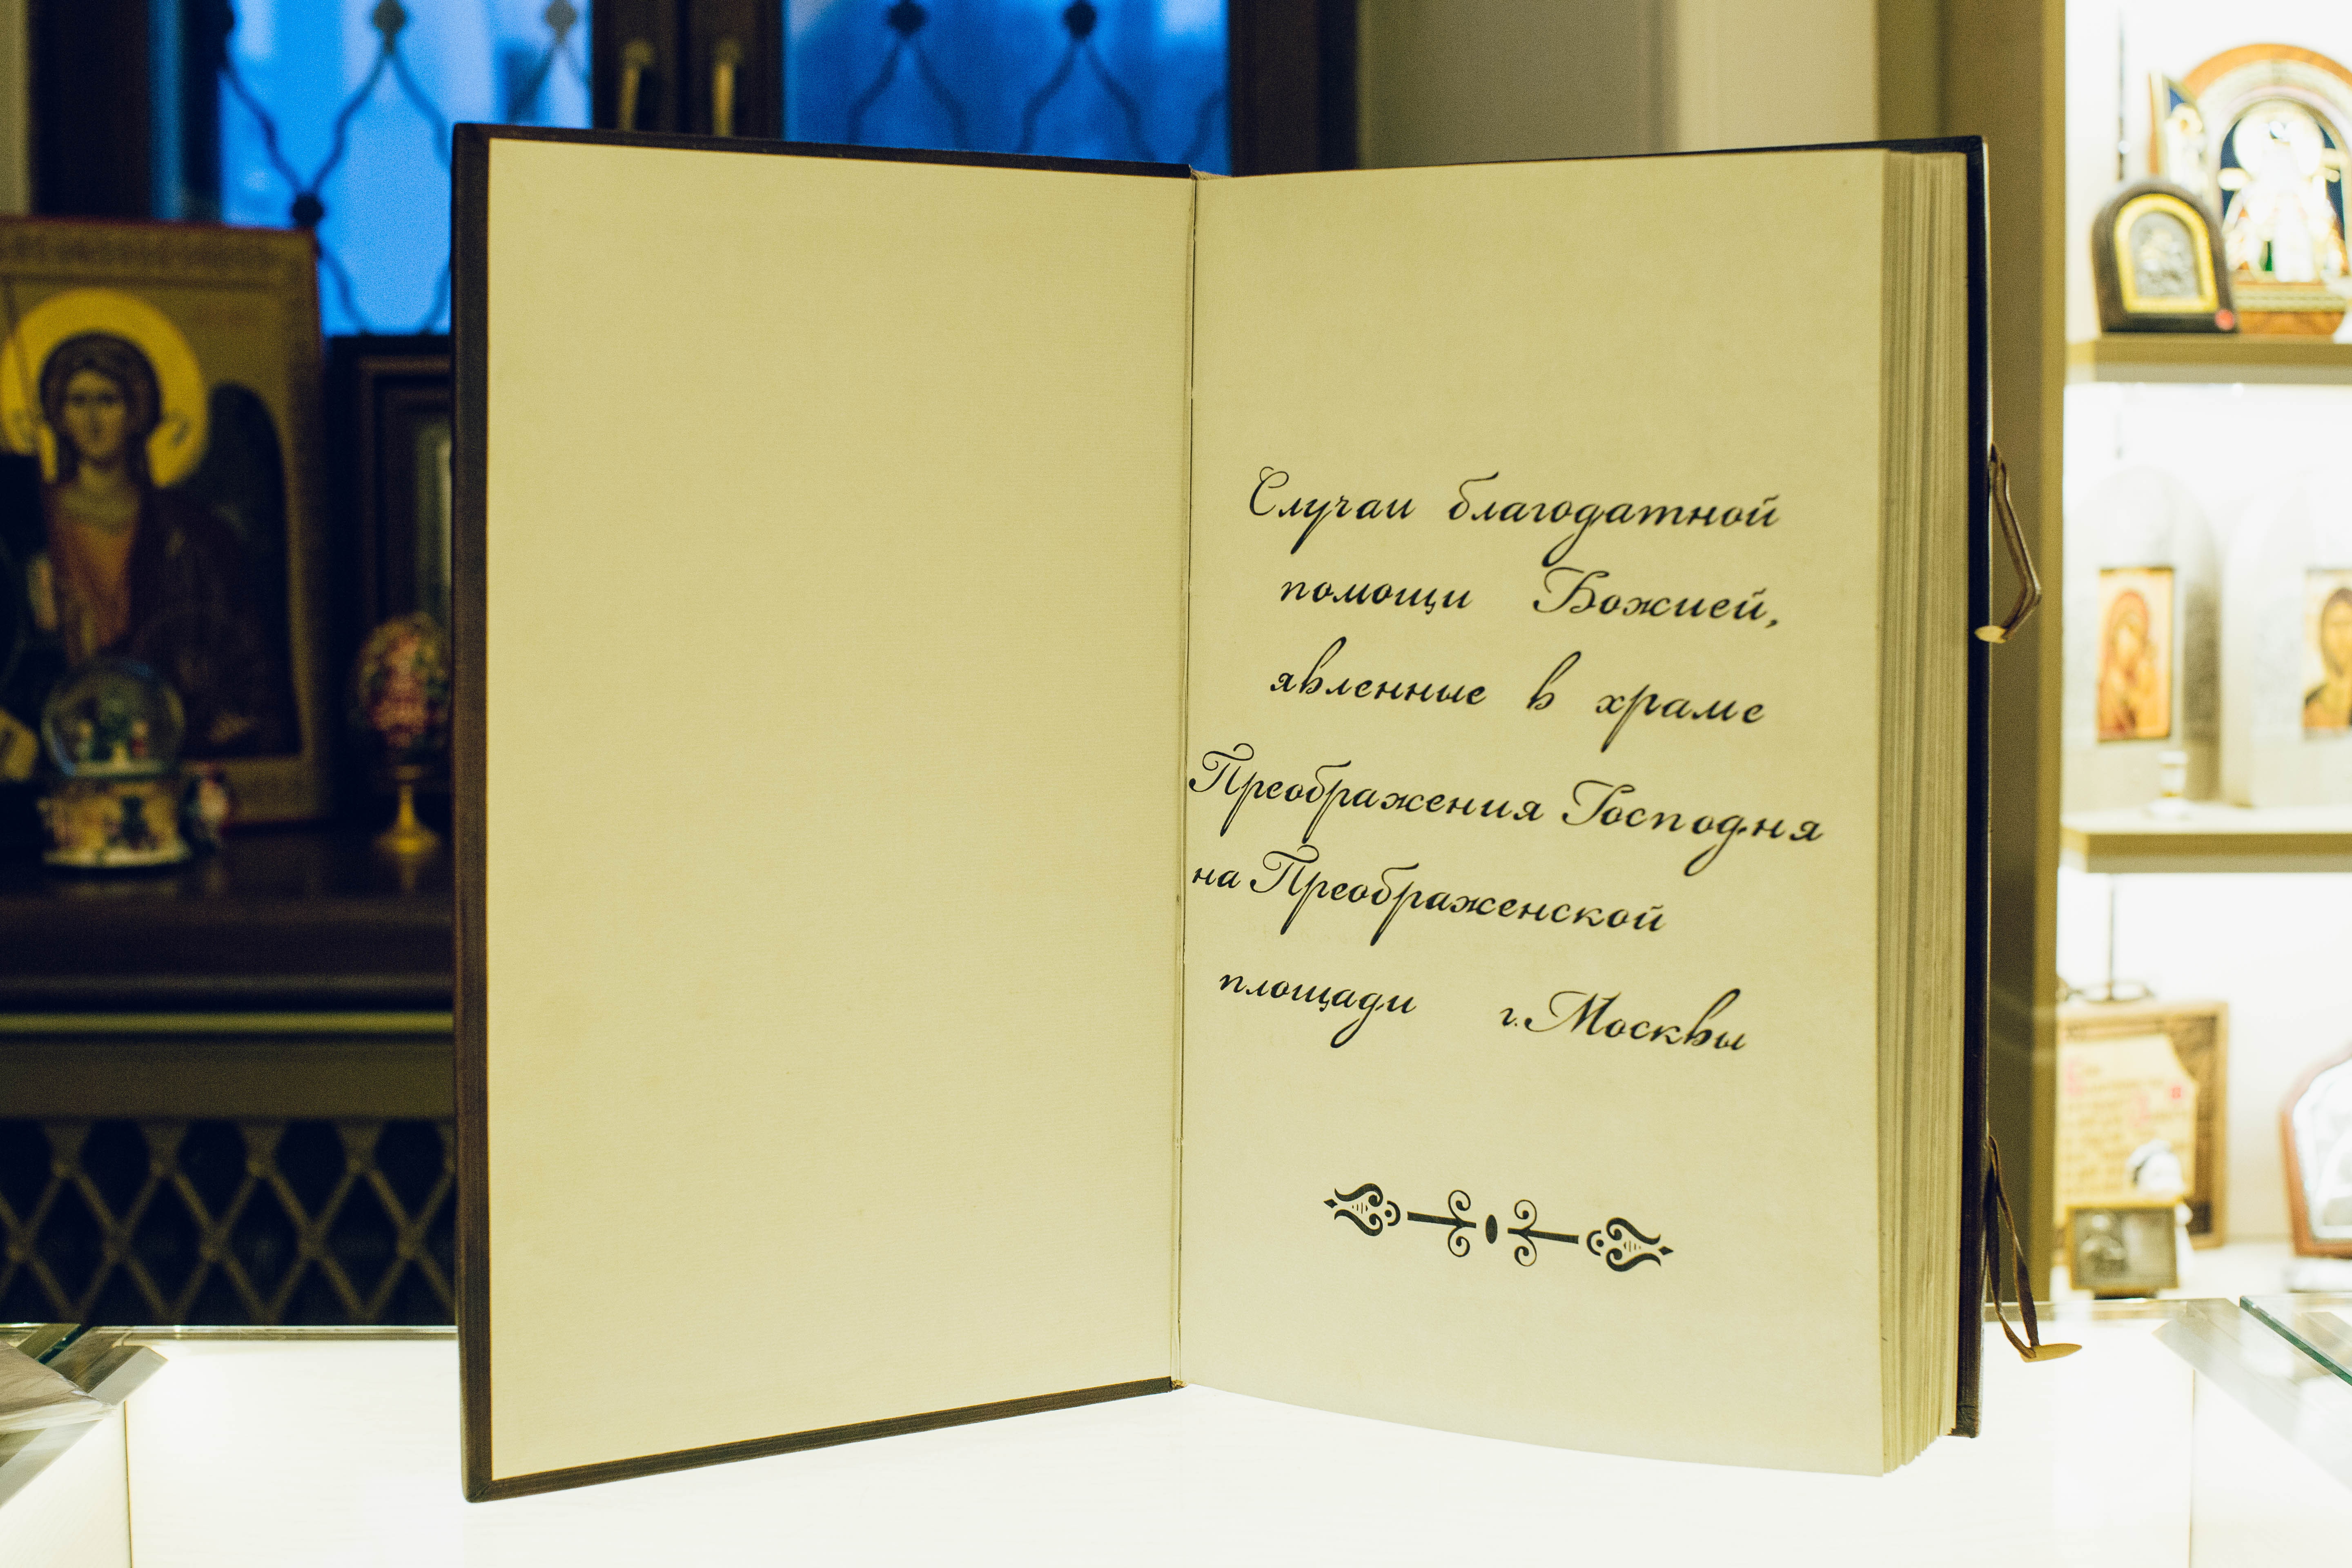 Случаи благодатной
помощи Божией,
явленные в храме
Преображения Господня
на Преображенской
площади г. Москвы